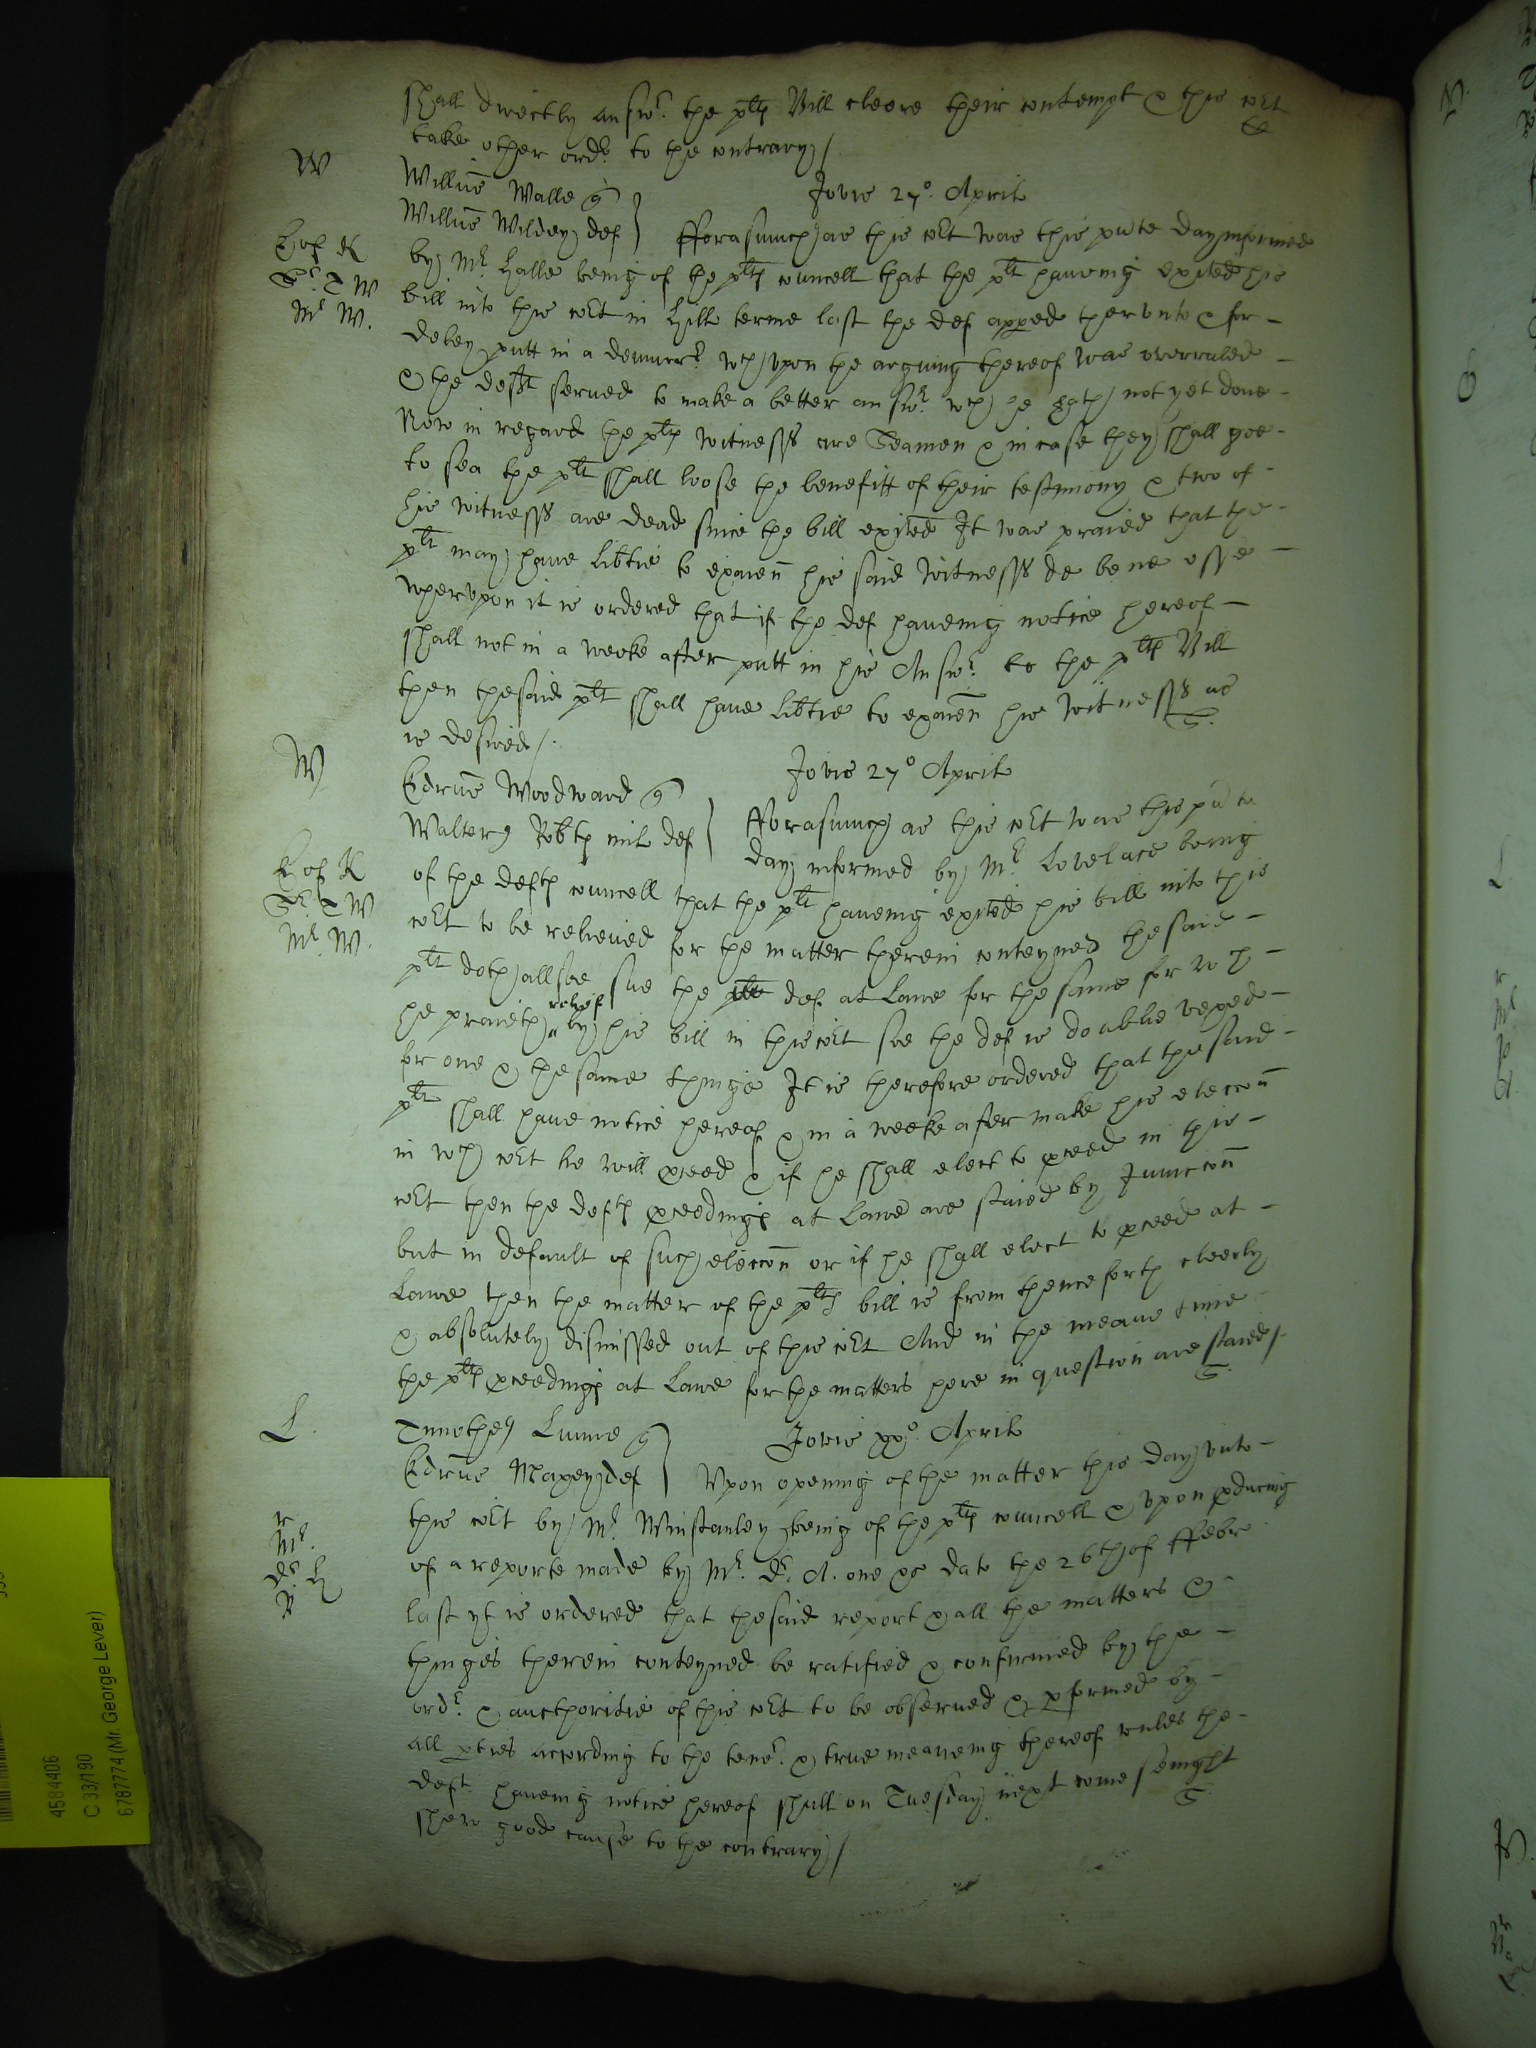 shall directly answr the plts Bill cleere their contempt & this cort
take other ordr to the contrary /
W
Jovis 27o Aprilis
Willms Walle q
Willms Wildey def
fforasmuch as this cort was this pnte day informed
by Mr Halle being of the plts councell that the plt haveing exited his
bill into this cort in Hill terme last the def apped therunto & for
deley putt in a demurrr wch upon the arguing thereof was overruled
& the deft served to make a better answr wch he hath not yet done
Now in regard the plts witnesses are Seamen & in case they shall goe
to sea the plt shall loose the benefitt of their testimony & two of
his witnesses are dead since the bill exited It was praied that the
plt may have libtie to examn his said witnesses de bene esse
wherupon it is ordered that if the def haveing notice hereof
shall not in a weeke after putt in his Answr to the plts Bill
then the said plt shall have libtie to examn his witnesses as
is desired /.
W
Jovis 27o Aprilis
Edrus Woodward q
Walterus Robts mil def
fforasmuch as this cort was this pnte
day informed by Mr Lovelace being
of the defts councell that the plt haveing exited his bill into this
cort to be relieved for the matter therein conteyned the said
plt doth allsoe sue the plt def at Lawe for the same for wch
he praieth relief by his bill in this cort soe the def is doublie vexed
for one & the same thinge It is therefore ordered that the said
plt shall have notice hereof & in a weeke after make his eleccon
in wch cort he will pceed & if he shall elect to pceed in this
cort then the defts pceedings at Lawe are staied by Iniunccon
but in default of such eleccon or if he shall elect to pceed at
Lawe then the matter of the plts bill is from thenceforth cleerly
& absolutely dismissed out of this cort And in the meane time
the plts pceedings at Lawe for the matters here in question are staied /.
L.
Jovis xxo Aprilis
Timotheus Lunne q
Edrus Maxey def
Upon opening of the matter this day unto
this cort by Mr Winstanley being of the plts councell & upon pducing
of a reporte made by Mr Dr A. one &c date the 26th of ffebr
last yt is ordered that the said report & all the matters &
thinges therein conteyned be ratified & confirmed by the
ordr & aucthoritie of this cort to be observed & pformed by
all pties according to the tenor & true meaneing thereof unles the
deft haveing notice hereof shall on Tuesday next come senight
shew good cause to the contrary /
4584406
C 33/190
6787774 (Mr. George Lever)